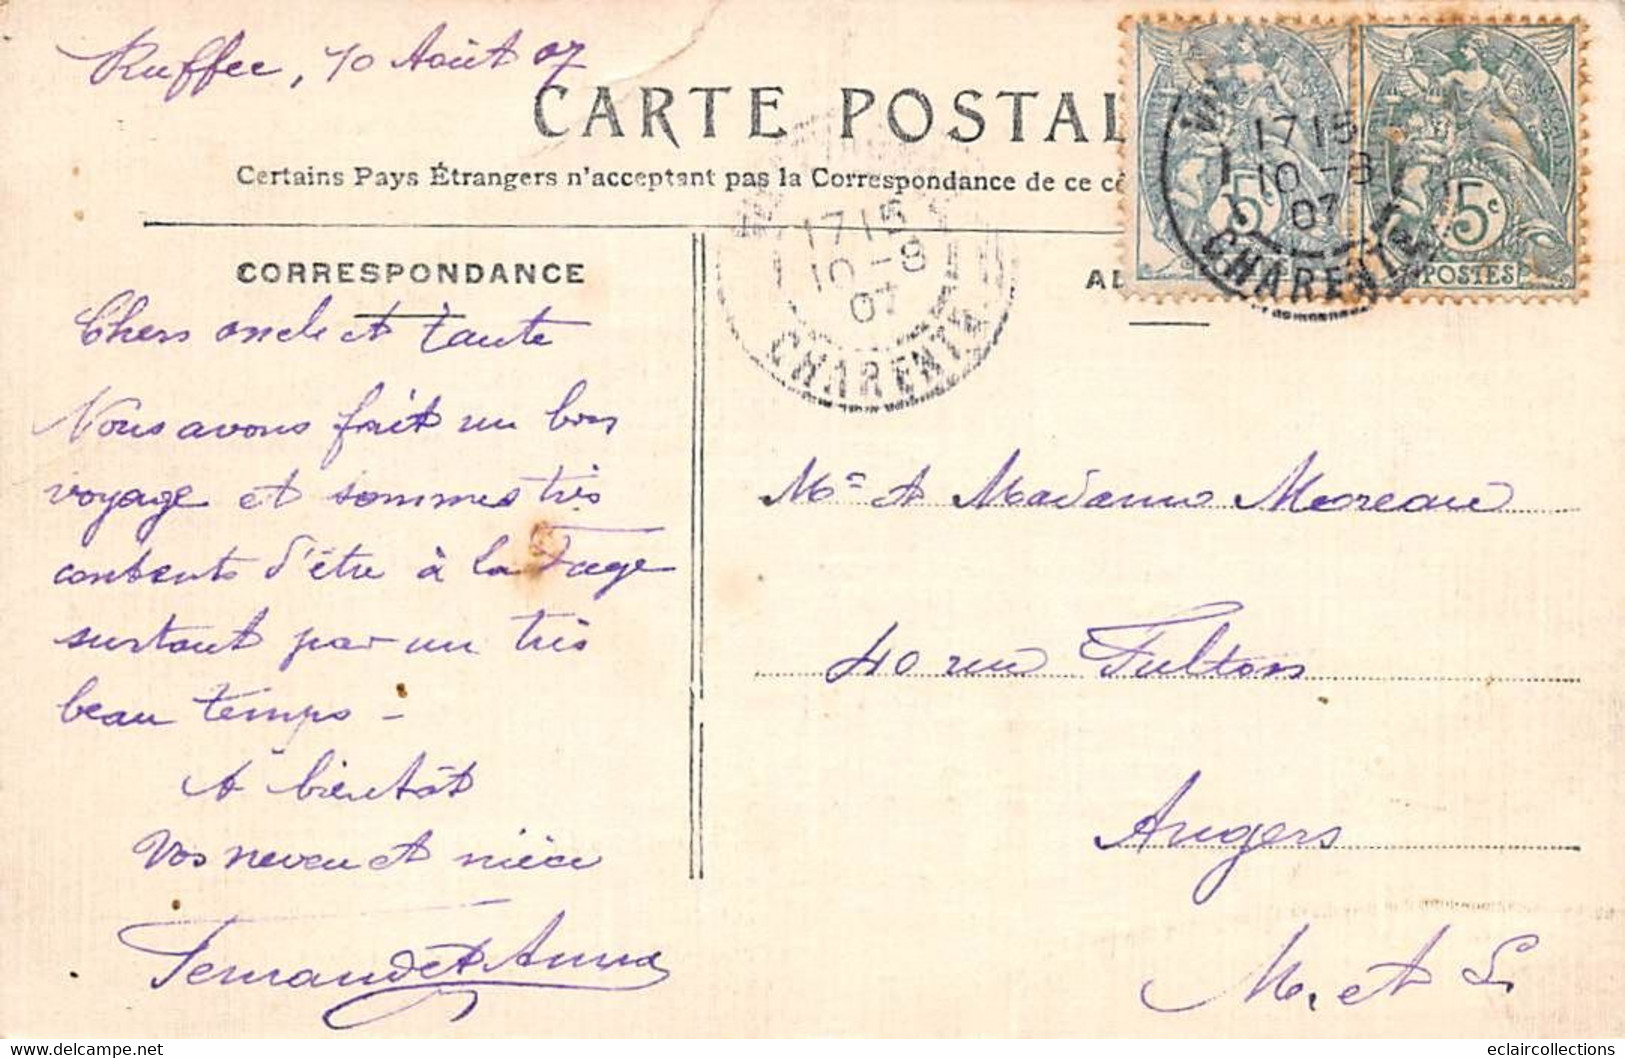 Ruffec, 10 Août 07
CARTE POSTAL
Certains Pays Étrangers n'acceptent pas la Correspondance de ce cô
CORRESPONDANCE
AD
1715
10-8
07
CHARENTE
1715
10-8
07
CHARENTE
5c
5c
POSTES
Chers oncle et Tante
Nous avons fait un bon
voyage et sommes très
contents d'être à la Fage
surtout par un très
beau temps -
A bientôt
Vos neveu et nièce
Fernand et Anna
Mr et Madame Moreau
40 rue Fulton
Angers
M. et L.
delcampe.net
eclaircollections